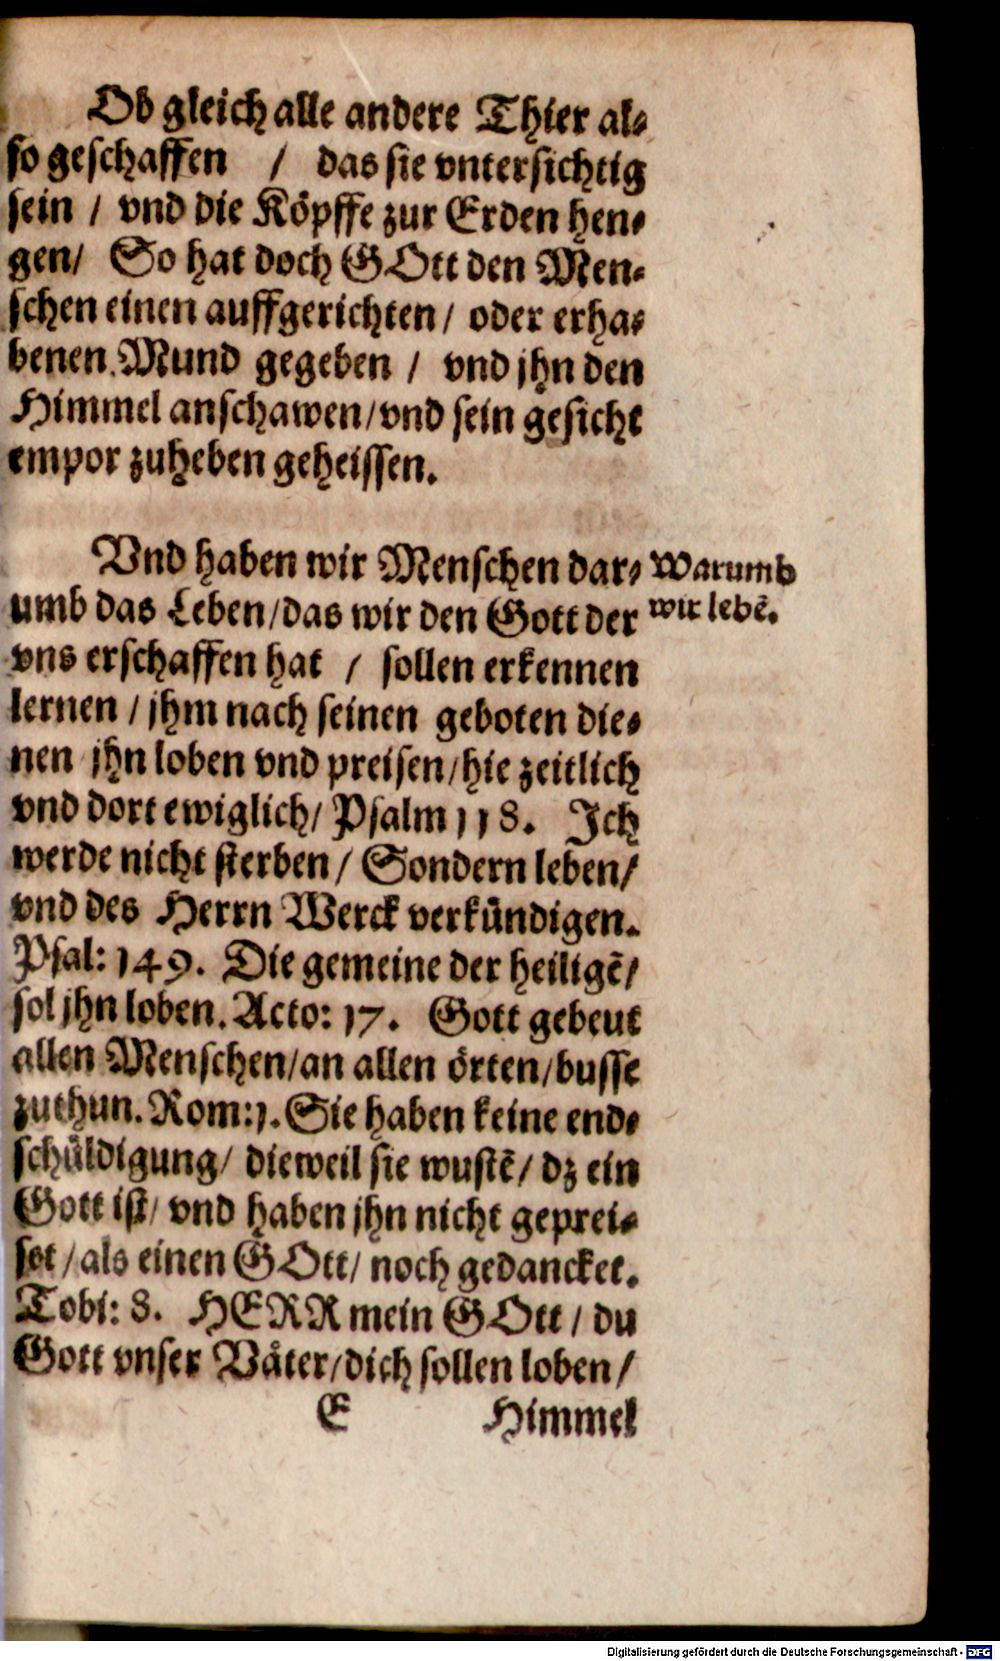 Ob gleich alle andere Thier al⸗
so geschaffen / das sie vntersichtig
sein / vnd die Köpffe zur Erden hen⸗
gen/ So hat doch GOtt den Men⸗
schen einen auffgerichten/ oder erha⸗
benen Mund gegeben / vnd jhn den
Himmel anschawen/vnd sein gesicht
empor zuheben geheissen.
Vnd haben wir Menschen dar⸗
Warumb
umb das Leben/das wir den Gott der
wir lebẽ.
vns erschaffen hat / sollen erkennen
lernen / jhm nach seinen geboten die⸗
nen jhn loben vnd preisen/hie zeitlich
vnd dort ewiglich/ Psalm 118. Ich
werde nicht sterben/ Sondern leben/
vnd des Herrn Werck verkündigen.
Psal: 149. Die gemeine der heiligẽ/
sol jhn loben. Acto: 17. Gott gebeut
allen Menschen/an allen örten/busse
zuthun. Rom:1. Sie haben keine end⸗
schüldigung/ dieweil sie wustẽ/ dz ein
Gott ist/ vnd haben jhn nicht geprei⸗
set/als einen GOtt/ noch gedancket.
Tobi: 8. HERR mein GOtt / du
Gott vnser Väter/dich sollen loben/
E Himmel
Digitalisierung gefördert durch die Deutsche Forschungsgemeinschaft - DFG